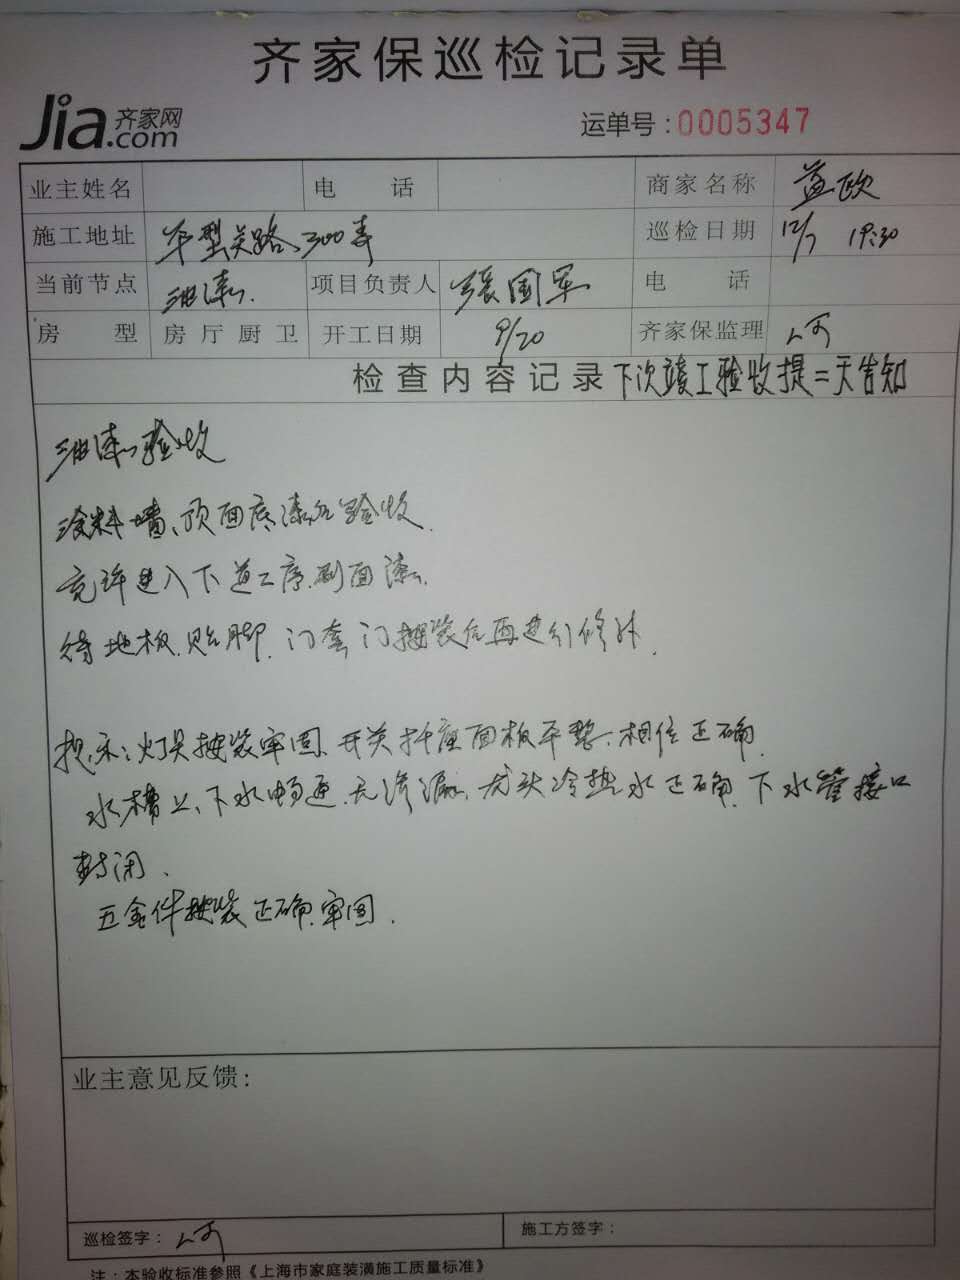 齐家保巡检记录单
Jia.com 齐家网
运单号:0005347
业主姓名 电话 商家名称 益欧
施工地址 平型关路、300弄 巡检日期 12/7 19:30
当前节点 油漆. 项目负责人 張国军 电话
房型 房厅厨卫 开工日期 9/20 齐家保监理
检查内容记录 下次竣工验收提二天告知
油漆验收
涂料墙、顶面底漆 验收.
允许进入下道工序.刷面漆.
待地板.贴脚.门套门 装后再进行修补.
提示:灯具按装牢固、开关扦座面板平整、相位正确.
水槽上、下水畅通.无渗漏.龙头冷热水正确.下水管接口
封闭、
五金件按装正确.牢固.
业主意见反馈:
巡检签字: 施工方签字:
注:本验收标准参照《上海市家庭装潢施工质量标准》